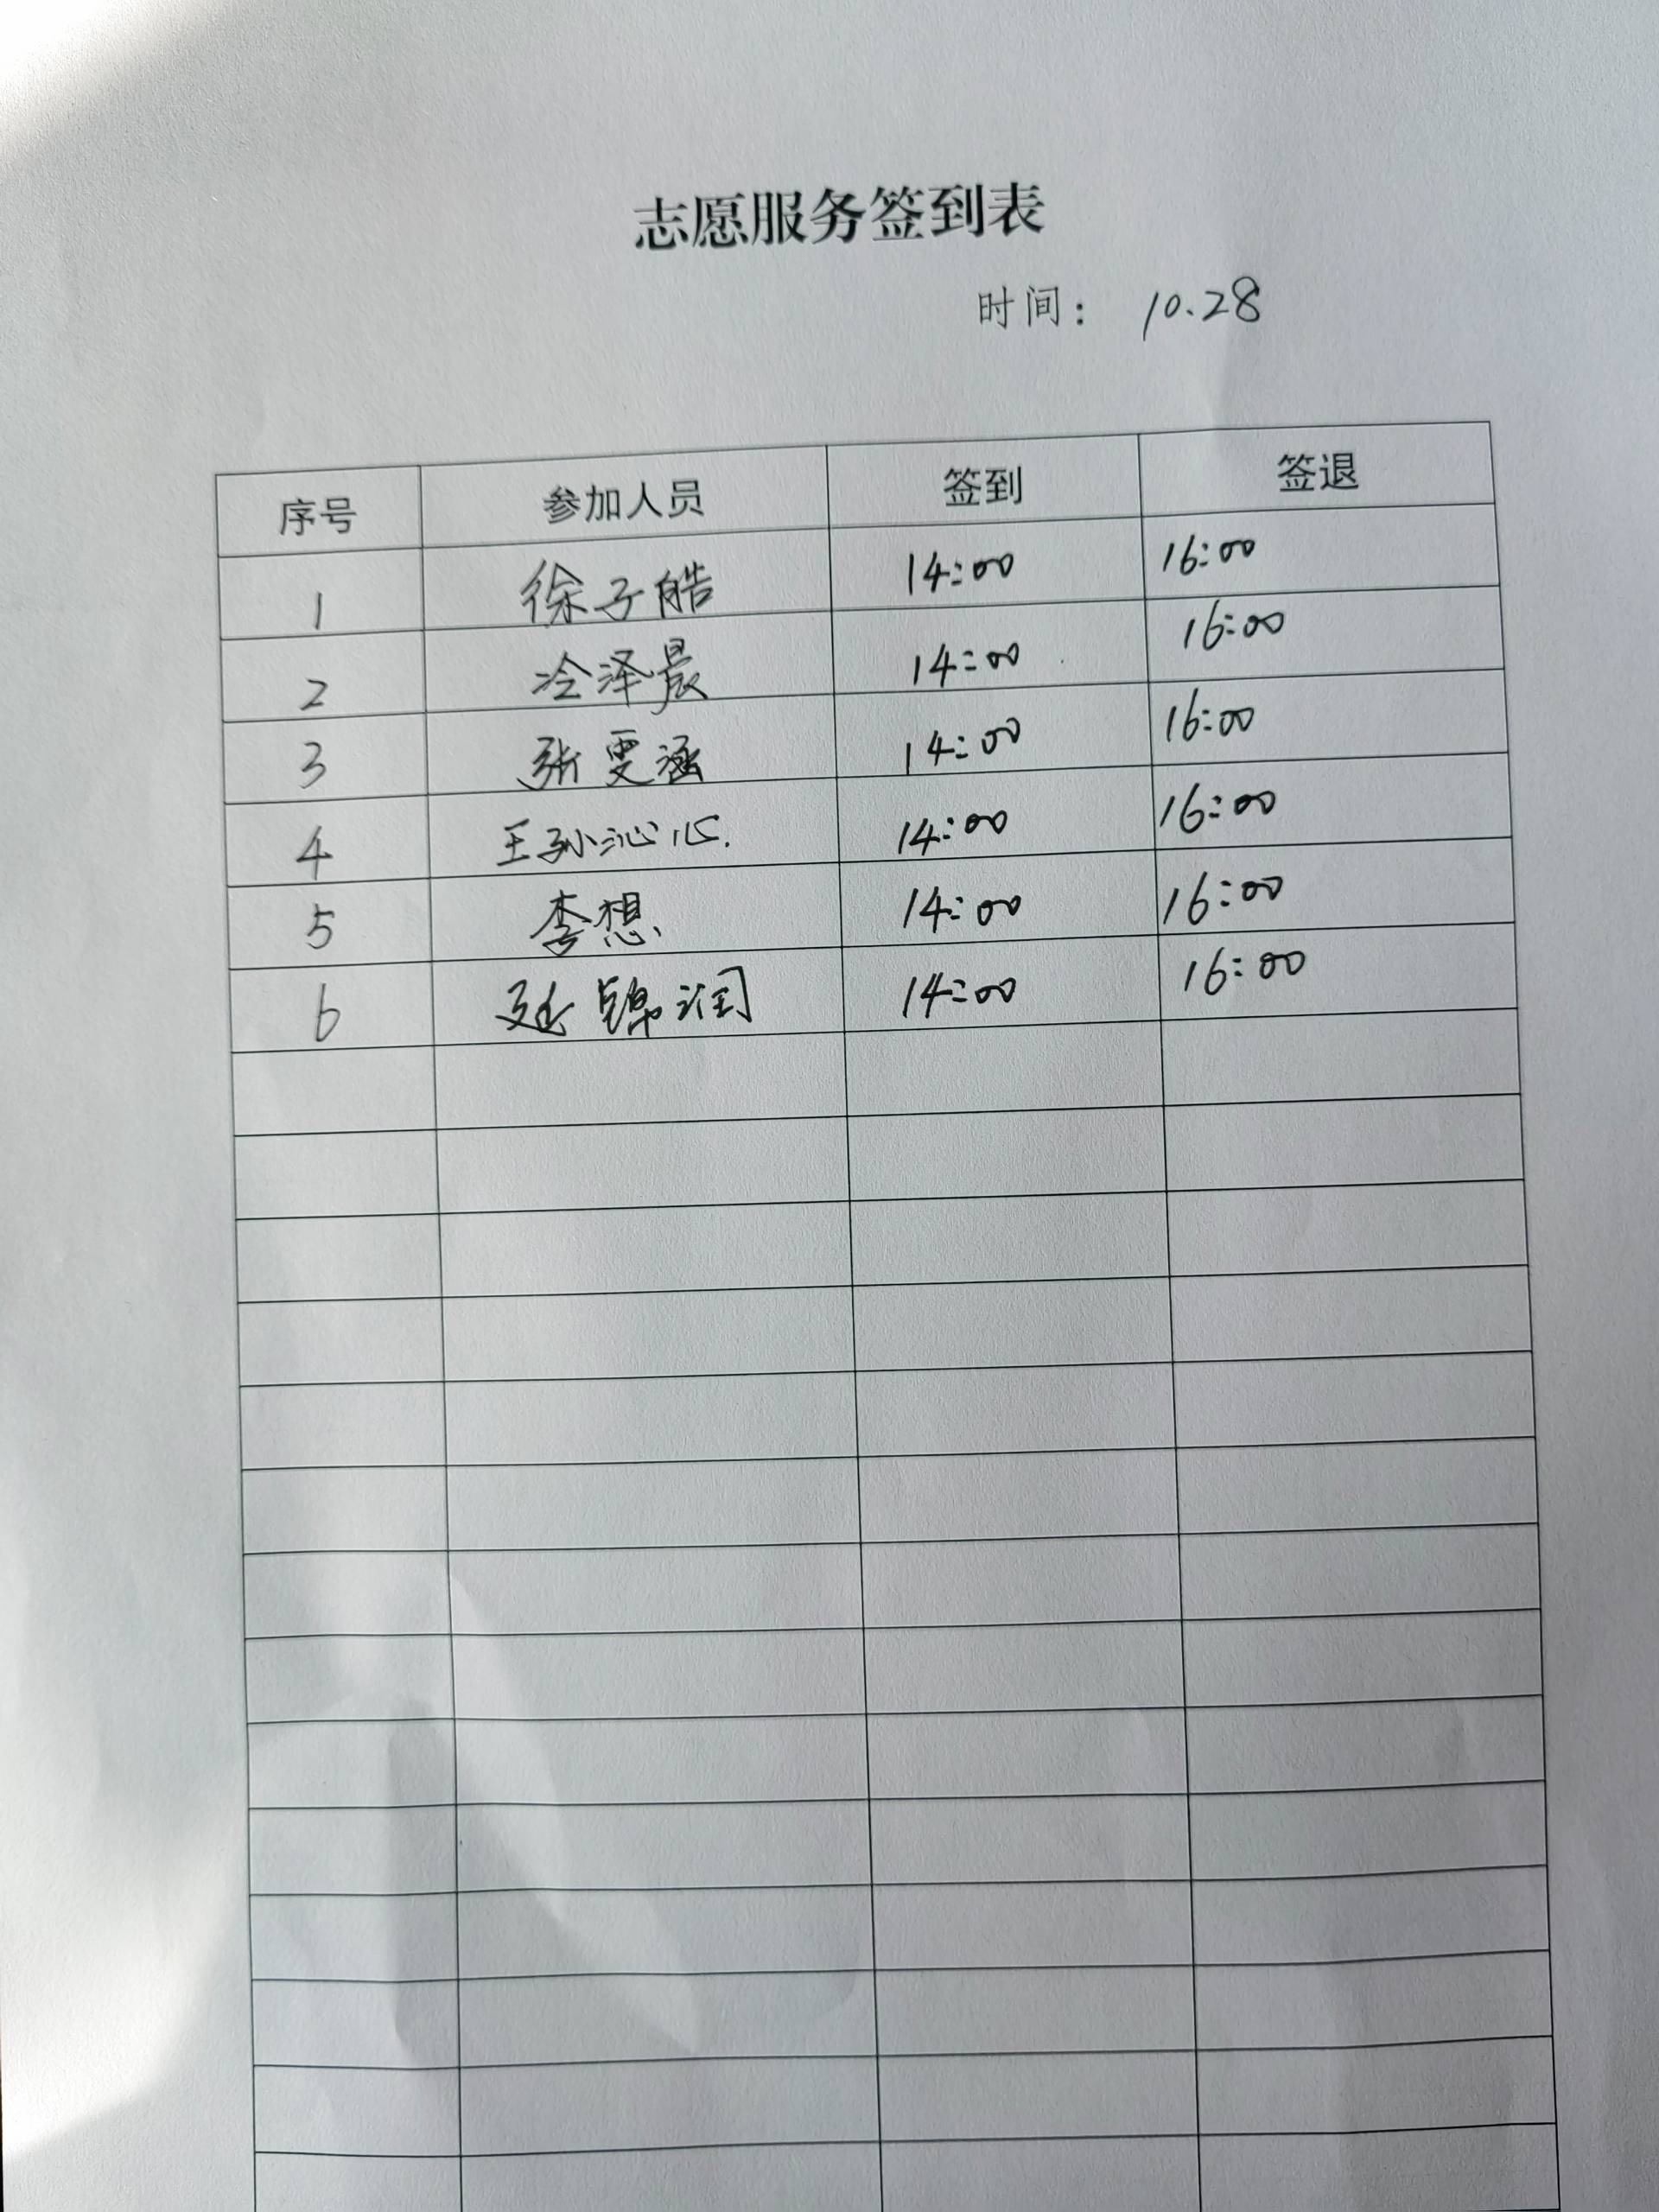 志愿服务签到表
时间： 10.28
序号 参加人员 签到 签退
1 徐子皓 14:00 16:00
2 冷泽晨 14:00 16:00
3 张雯涵 14:00 16:00
4 王孙沁心. 14:00 16:00
5 李想 14:00 16:00
6 延锦润 14:00 16:00